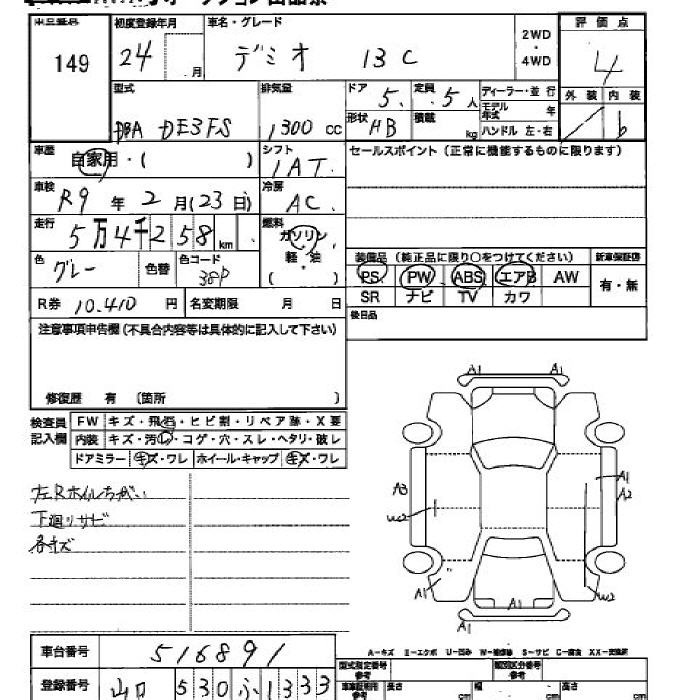 149
初度登録年月 24 月
車名・グレード デミオ 13C
2WD・4WD
評価点 4
外装 内装 b
型式 DBA DE3FS
排気量 1300 CC
ドア 5. 定員 5人
ディーラー・並行
モデル年式 年
形状 HB 積載 kg ハンドル 左・右
車歴 自家用・( )
シフト IAT
セールスポイント(正常に機能するものに限ります)
車検 R9年2月(23日)
冷房 AC
走行 5万4千258km
燃料 ガソリン・軽油 ( )
色 グレー 色替 色コード 38P
装備品(純正品に限り○をつけてください) 新車保証書
PS PW ABS エアB AW 有・無
SR ナビ TV カワ
R券 10.410円 名変期限 月 日
後日品
注意事項申告欄(不具合内容等は具体的に記入して下さい)
修復歴 有 〔箇所 〕
検査員記入欄
FW キズ・飛石・ヒビ割・リペア跡・X要
内装 キズ・汚れ・コゲ・穴・スレ・ヘタリ・破レ
ドアミラー キズ・ワレ ホイール・キャップ キズ・ワレ
左Rホイルちがい
下廻りサビ
各キズ
A1 A1
A3 A1
A2
W2
A1 A1 W2
A1
A-キズ E-エクボ U-凹み W-補修跡 S-サビ C-腐食 XX-交換済
車台番号 516891
型式指定番号 類別区分番号
登録番号 山口 530 ふ 1333
長さ cm 幅 cm 高さ cm